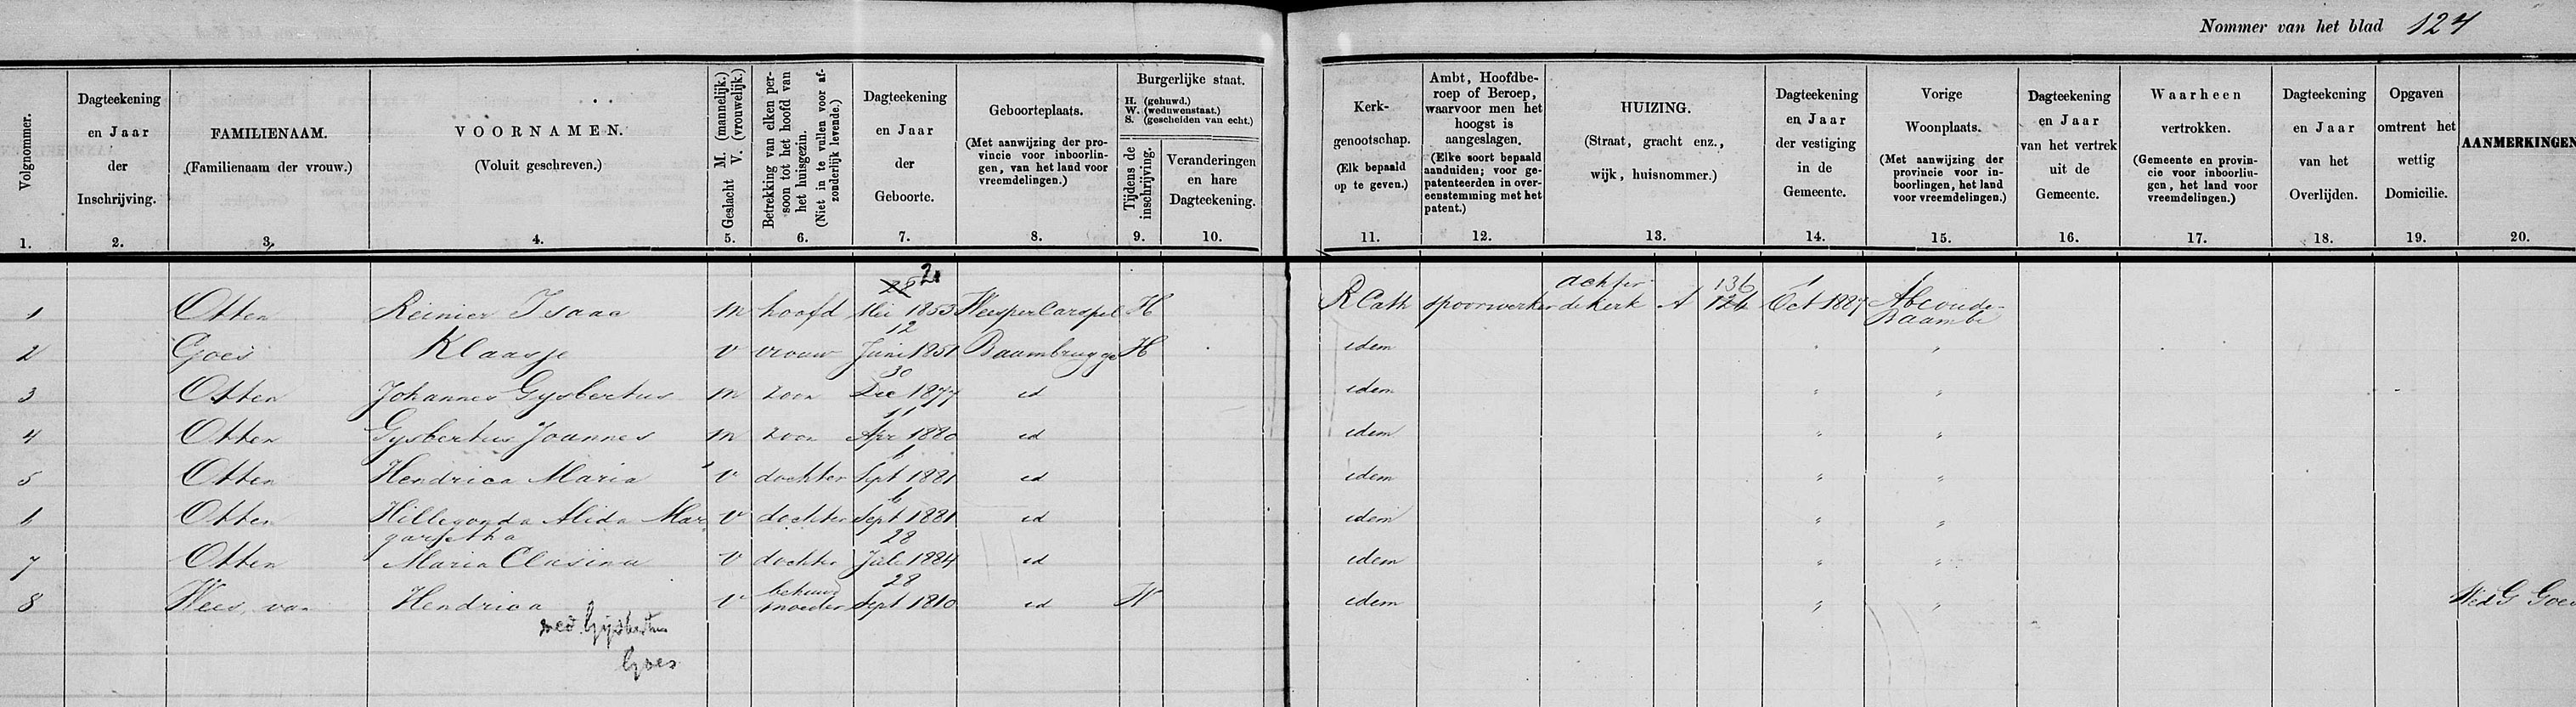 Nommer van het blad 124
Volgnommer.
1.
Dagteekening
en Jaar
der
Inschrijving.
2.
FAMILIENAAM.
(Familienaam der vrouw.)
3.
VOORNAMEN.
(Voluit geschreven.)
4.
Geslacht M. (mannelijk.)
V. (vrouwelijk.)
5.
Betrekking van elken per-
soon tot het hoofd van
het huisgezin.
(Niet in te vullen voor af-
zonderlijk levende.)
6.
Dagteekening
en Jaar
der
Geboorte.
7.
Geboorteplaats.
(Met aanwijzing der pro-
vincie voor inboorlin-
gen, van het land voor
vreemdelingen.)
8.
Burgerlijke staat.
H. (gehuwd.)
W. (weduwenstaat.)
S. (gescheiden van echt.)
Tijdens de
inschrijving.
9.
Veranderingen
en hare
Dagteekening.
10.
Kerk-
genootschap.
(Elk bepaald
op te geven.)
11.
Ambt, Hoofdbe-
roep of Beroep,
waarvoor men het
hoogst is
aangeslagen.
(Elke soort bepaald
aanduiden; voor ge-
patenteerden in over-
eenstemming met het
patent.)
12.
HUIZING.
(Straat, gracht enz.,
wijk, huisnommer.)
13.
Dagteekening
en Jaar
der vestiging
in de
Gemeente.
14.
Vorige
Woonplaats.
(Met aanwijzing der
provincie voor in-
boorlingen, het land
voor vreemdelingen.)
15.
Dagteekening
en Jaar
van het vertrek
uit de
Gemeente.
16.
Waarheen
vertrokken.
(Gemeente en provin-
cie voor inboorlin-
gen, het land voor
vreemdelingen.)
17.
Dagteekening
en Jaar
van het
Overlijden.
18.
Opgaven
omtrent het
wettig
Domicilie.
19.
AANMERKINGEN
20.
28 21 achter 136 1
1 Otten Reinier Isaac m hoofd Mei 1853 Weespercarspel H R Cath spoorwerker de kerk A 126 Oct 1887 Abcoude
Baambr
12
2 Goes Klaasje v vrouw Juni 1851 Baambrugge H idem "
30
3 Otten Johannes Gysbertus m zoon Dec 1877 id idem " "
11
4 Otten Gysbertus Joannes m zoon Apr 1880 id idem " "
1
5 Otten Hendrica Maria v dochter Sept 1881 id idem " "
6
6 Otten Hillegonda Alida Mar v dochter Sept 1881 id idem " "
garetha 28
7 Otten Maria Clasina v dochter Juli 1884 id idem " "
behuwd 28
8 Wees, van Hendrica v moeder Sept 1810 id idem " " Wed G Goes
wed. Gijsbertus
Goes